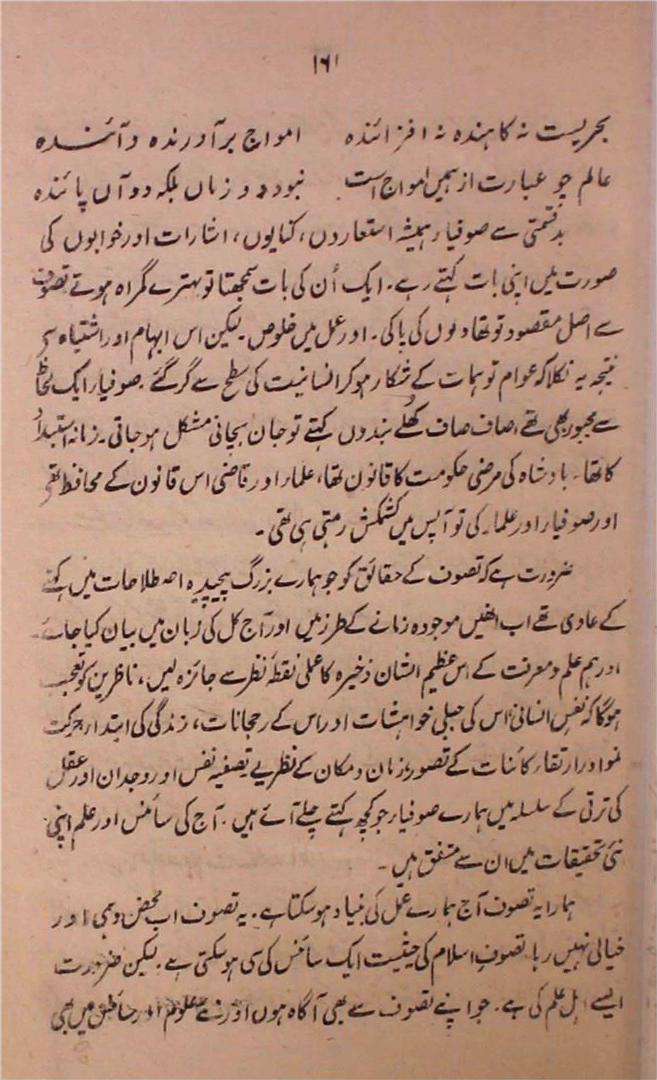 ۱۶۱
بحریست نہ کاہندہ نہ افزائندہ امواج برآورندہ و آئندہ
عالم چو عبارت ازہمیں امواج است نبود دو زماں بلکہ دوآں پائندہ
بدقسمتی سے صوفیاء ہمیشہ استعاردں، کنایوں، اشارات اورخوابوں کی
صورت میں اپنی بات کہتے رہے۔ ایک اُن کی بات سمجھتا تو بہترے گمراہ ہوتے تصوف
سے اصل مقصود تو تھا دلوں کی پاکی۔ اور عمل میں خلوص۔ لیکن اس ابہام اور اشتباہ سے
نتیجہ یہ نکلا کہ عوام توہمات کے شکار ہوکر انسانیت کی سطح سے گرگئے۔ صوفیاء ایک لحاظ
سے مجبور بھی تھے، صاف صاف کھُلے بندوں کہتے تو جان بچانی مشکل ہوجاتی۔ زمانہ استبداد
کا تھا۔ بادشاہ کی مرضی حکومت کا قانون تھا، علماء اور قاضی اس قانون کے محافظ تھے
اور صوفیاء اور علماء کی تو آپس میں کشمکش رہتی ہی تھی۔
ضرورت ہے کہ تصوف کے حقائق کو جو ہمارے بزرگ پیچیدہ اصطلاحات میں کہنے
کے عادی تھے اب انھیں موجودہ زمانے کے طرز میں اور آج کل کی زبان میں بیان کیا جائے
اور ہم علم و معرفت کے اس عظیم الشان ذخیرہ کا علمی نقطۂ نظر سے جائزہ لیں، ناظرین کو تعجب
ہوگا کہ نفس انسانی، اس کی جبلی خواہشات اور اس کے رجحانات، زندگی کی ابتداء، حرکت
نمو اور ارتقاء کائنات کے تصور، زمان و مکان کے نظریے تصفیہ نفس اور وجدان اور عقل
کی ترقی کے سلسلہ میں ہمارے صوفیاء جو کچھ کہتے چلے آئے ہیں۔ آج کی سائنس اور علم اپنی
نئی تحقیقات میں ان سے متفق ہیں۔
ہمارا یہ تصوف آج ہمارے عمل کی بنیاد ہوسکتا ہے۔ یہ تصوف اب محض وہمی اور
خیالی نہیں رہا۔ تصوفِ اسلام کی حیثیت ایک سائنس کی سی ہوسکتی ہے۔ لیکن ضرورت
ایسے اہل علم کی ہے۔ جو اپنے تصوف سے بھی آگاہ ہوں اور نئے علوم اور میں بھی